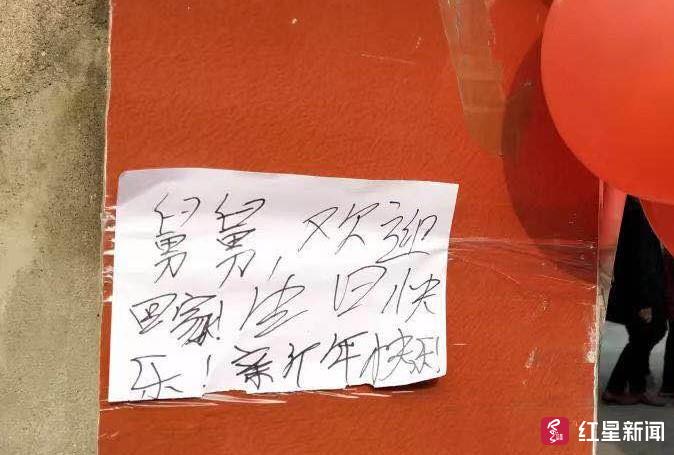 舅舅,欢迎
回家!生日快
乐!新年快乐!
红星新闻